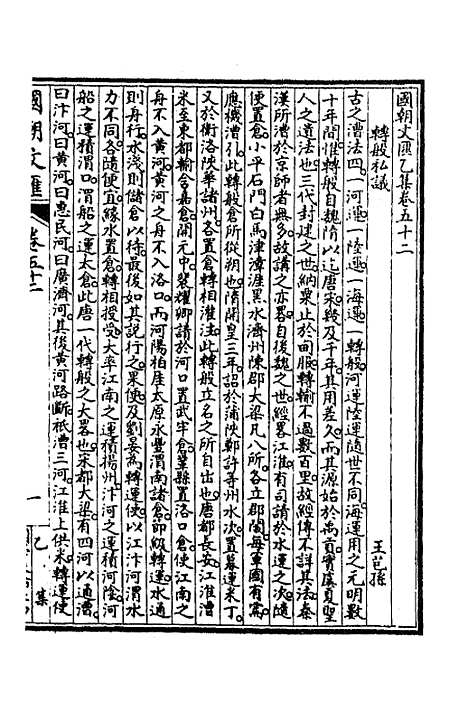 國朝文匯乙集卷五十二
轉般私議
王芑孫
古之漕法四一河運一陸運一海運一轉般河運陸運隨世不同海運用之元明數
十年間惟轉般自魏隋以迄唐宋歲及千年其用差久而其源始於禹貢實虞夏聖
人之遺法也三代封建之世納粟止於甸服轉輸不過數百里故經傳不詳其法秦
漢所漕於京師者無多故講之亦畧自後魏之世經畧江淮有司請於水運之次隨
便置倉小平石門白馬津漳涯黑水濟州陳郡大梁凡八所各立邸閣每軍國有需
應機漕引此轉般倉所從朔也隋開皇三年詔於蒲陝鄭許等州水次置募運米丁
又於衛洛陝華諸州各置倉轉相灌注此轉般立名之所自出也唐都長安江淮漕
米至東都輸含嘉倉開元中裴耀卿請於河口置武牢倉鞏縣置洛口倉使江南之
舟不入黃河黃河之舟不入洛口而河陽柏崖太原永豐渭南諸倉節級轉運水通
則舟行水淺則儲倉以待最後如其說行之果便及劉晏為轉運使以江汴河渭水
力不同各隨便宜緣水置倉轉相授受大率江南之運積揚州汴河之運積河陰河
船之運積渭口渭船之運太倉此唐一代轉般之大畧也宋都大梁有四河以通漕
曰汴河曰黃河曰惠民河曰廣濟河其後黃河路斷祇漕三河江淮上供米轉運使
國朝文匯
卷五十二
一
乙集